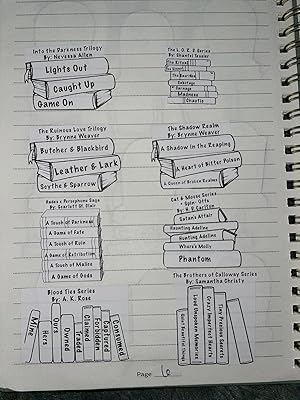 Into the Darkness Trilogy
By: Navessa Allen
Lights Out
Caught Up
Game On
The L.O.R.D Series
By: Shantel Tessier
The Ritual
The Sinner
The Sacrifice
Sabotage
Carnage
Madness
Chaotic
The Ruinous Love Trilogy
By: Brynne Weaver
Butcher & Blackbird
Leather & Lark
Scythe & Sparrow
The Shadow Realm
By: Brynne Weaver
A Shadow in the Reaping
A Heart of Bitter Poison
A Queen of Broken Realms
Hades x Persephone Saga
By: Scarlett St. Clair
A Touch of Darkness
A Game of Fate
A Touch of Ruin
A Game of Retribution
A Touch of Malice
A Game of Gods
Cat & Mouse Series
+ Spin-Offs
By: H. D. Carlton
Satan's Affair
Haunting Adeline
Hunting Adeline
Where's Molly
Phantom
Blood Ties Series
By: A. K. Rose
Mine
Hers
Ours
Owned
Traded
Claimed
Forbidden
Captured
Consumed
The Brothers of Calloway Series
By: Samantha Christy
Quiet Beautiful Things
Loud Unspoken Memories
Crazy Imperfect Hearts
Tiny Precious Secrets
Page 6